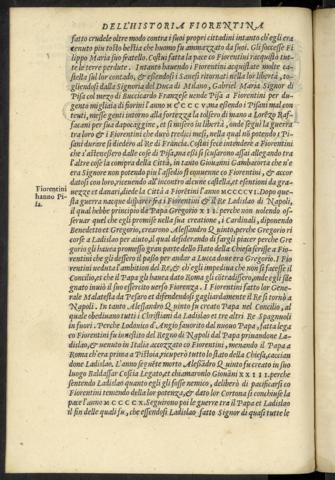 DELL'HISTORIA FIORENTINA
fatto crudele oltre modo contra i suoi propri cittadini intanto ch'egli era
tenuto piu tosto bestia che huomo fu ammazzato da suoi. Gli successe Fi
lippo Maria suo fratello. Costui fatta la pace co Fiorentini racquisto tut-
te le terre perdute. Intanto hauendo i Fiorentini acquistate molte ca-
stella sul lor contado, & essendosi i Sanesi ritornati nella lor libertà, to-
gliendosi dalla Signoria del Duca di Milano, Gabriel Maria Signor di
Pisa col mezo di Bucciardo Franzese uende Pisa a Fiorentini per du-
gento migliaia di fiorini l'anno MCCCCV. ma essendo i Pisani mal con
tenti, messe genti intorno alla fortezza la tolsero di mano a Lorẽzo Raf-
facani per sua dapocaggine, et si misero in libertà, onde segui la guerra
tra loro & i Fiorentini che durò tredici mesi, nella qual nõ potendo i Pi-
sani durare si diedero al Re di Francia. Costui fece intẽdere a Fiorentini
che s'astenessero dalle cose di Pisa, ma essi si scusarono assai allegando tra
l'altre cose la compra della Città, in tanto Giouanni Gambacorta che n'e
ra Signore non potendo piu l'assedio si conuenne co Fiorentini, & accor
datosi con loro, riceuendo all'incontro alcune castella, et esentioni da gra-
uezze et danari, diede la Città a Fiorentini l'anno MCCCCVI. Dopo que-
Fiorentini
hanno Pi-
sa.
sta guerra nacque disparere fra i Fiorentini & il Re Ladislao di Napoli,
il qual hebbe principio da Papa Gregorio XII. perche non uolendo of-
seruar quel che egli promise nella sua creatione, i Cardinali, diponendo
Benedetto et Gregorio, crearono Alessandro Quinto, perche Gregorio ri
corse a Ladislao per aiuto, il qual desiderando di fargli piacer perche Gre
gorio gli haueua promesso gran parte dello stato della Chiesa scrisse a Fio-
rentini che gli dessero il passo per andar a Lucca doue era Gregorio. I Fio
rentini ueduta l'ambition del Re, & ch'egli impediua che non si facesse il
Concilio, & che il Papa gli hauea dato Roma gli cõtradissero, onde egli sde
gnato inuiò il suo essercito uerso Fiorenza. I Fiorentini fatto lor Gene-
rale Malatesta da Pesaro et difendendosi gagliardamente il Re si tornò a
Napoli. In tanto Alessandro Quinto fu creato Papa nel Concilio, al
quale obedirono tutti i Christiani da Ladislao et tre altri Re Spagnuoli
in fuori. Perche Lodouico d'Angio fauorito dal nuouo Papa, fatta lega
co Fiorentini fu inuestito del Regno di Napoli dal Papa priuandone La-
dislao, & uenuto in Italia accozzato co Fiorentini, menando il Papa a
Roma ch'era prima a Pistoia, ricuperò tutto lo stato della Chiesa, caccian
done Ladislao. L'anno seguẽte morto Alessãdro Quinto fu creato in suo
luogo Baldassar Coscia Legato, et chiamaronlo Giouãni XXIIII. perche
sentendo Ladislao quanto egli gli fosse nemico, deliberò di pacificarsi co
Fiorentini temendo della lor potenza, & dato lor Cortona si conchiuse la
pace l'anno MCCCCX. Seguirono poi le guerre tra il Papa et Ladislao
il fin delle quali fu, che essendosi Ladislao fatto Signor di quasi tutte le